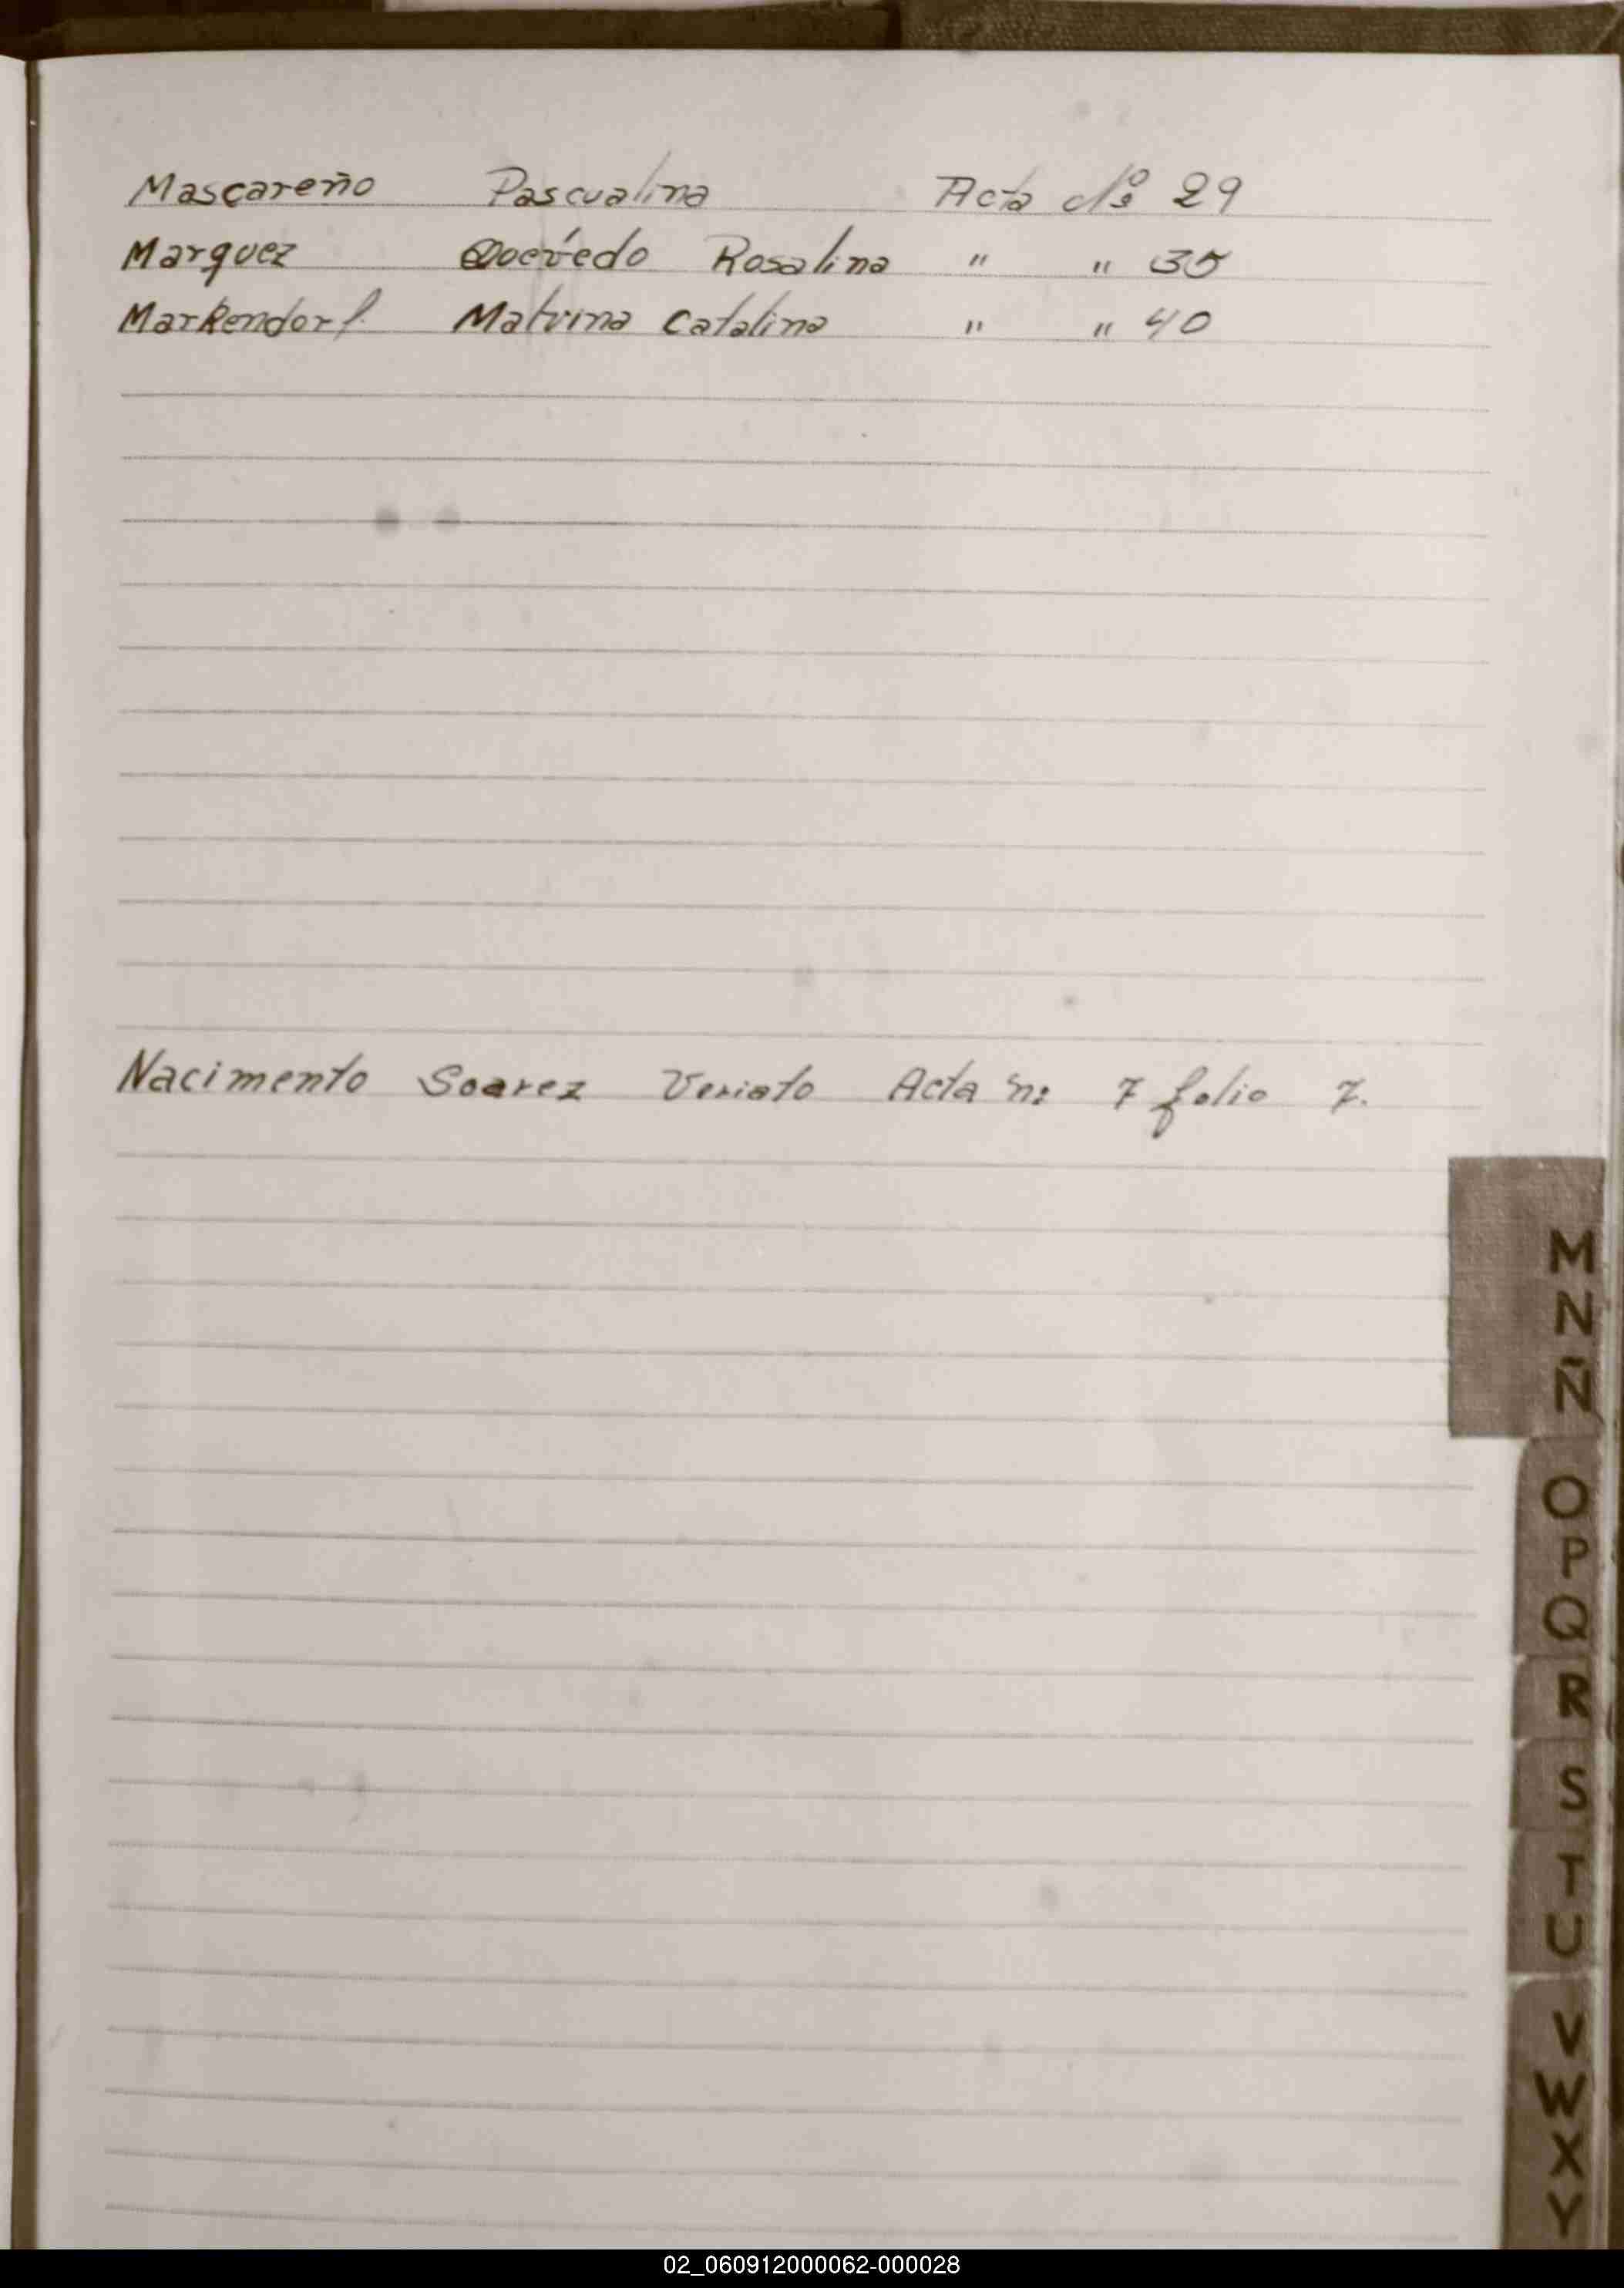 Mascareño Pascualina Acta Nº 29
Marquez Quevedo Rosalina " " 35
Markendorf. Malvina Catalina " " 40
Nacimento Soarez Veriato Acta n: 7 folio 7.
M
N
Ñ
O
P
Q
R
S
T
U
V
W
X
Y
02_060912000062-000028